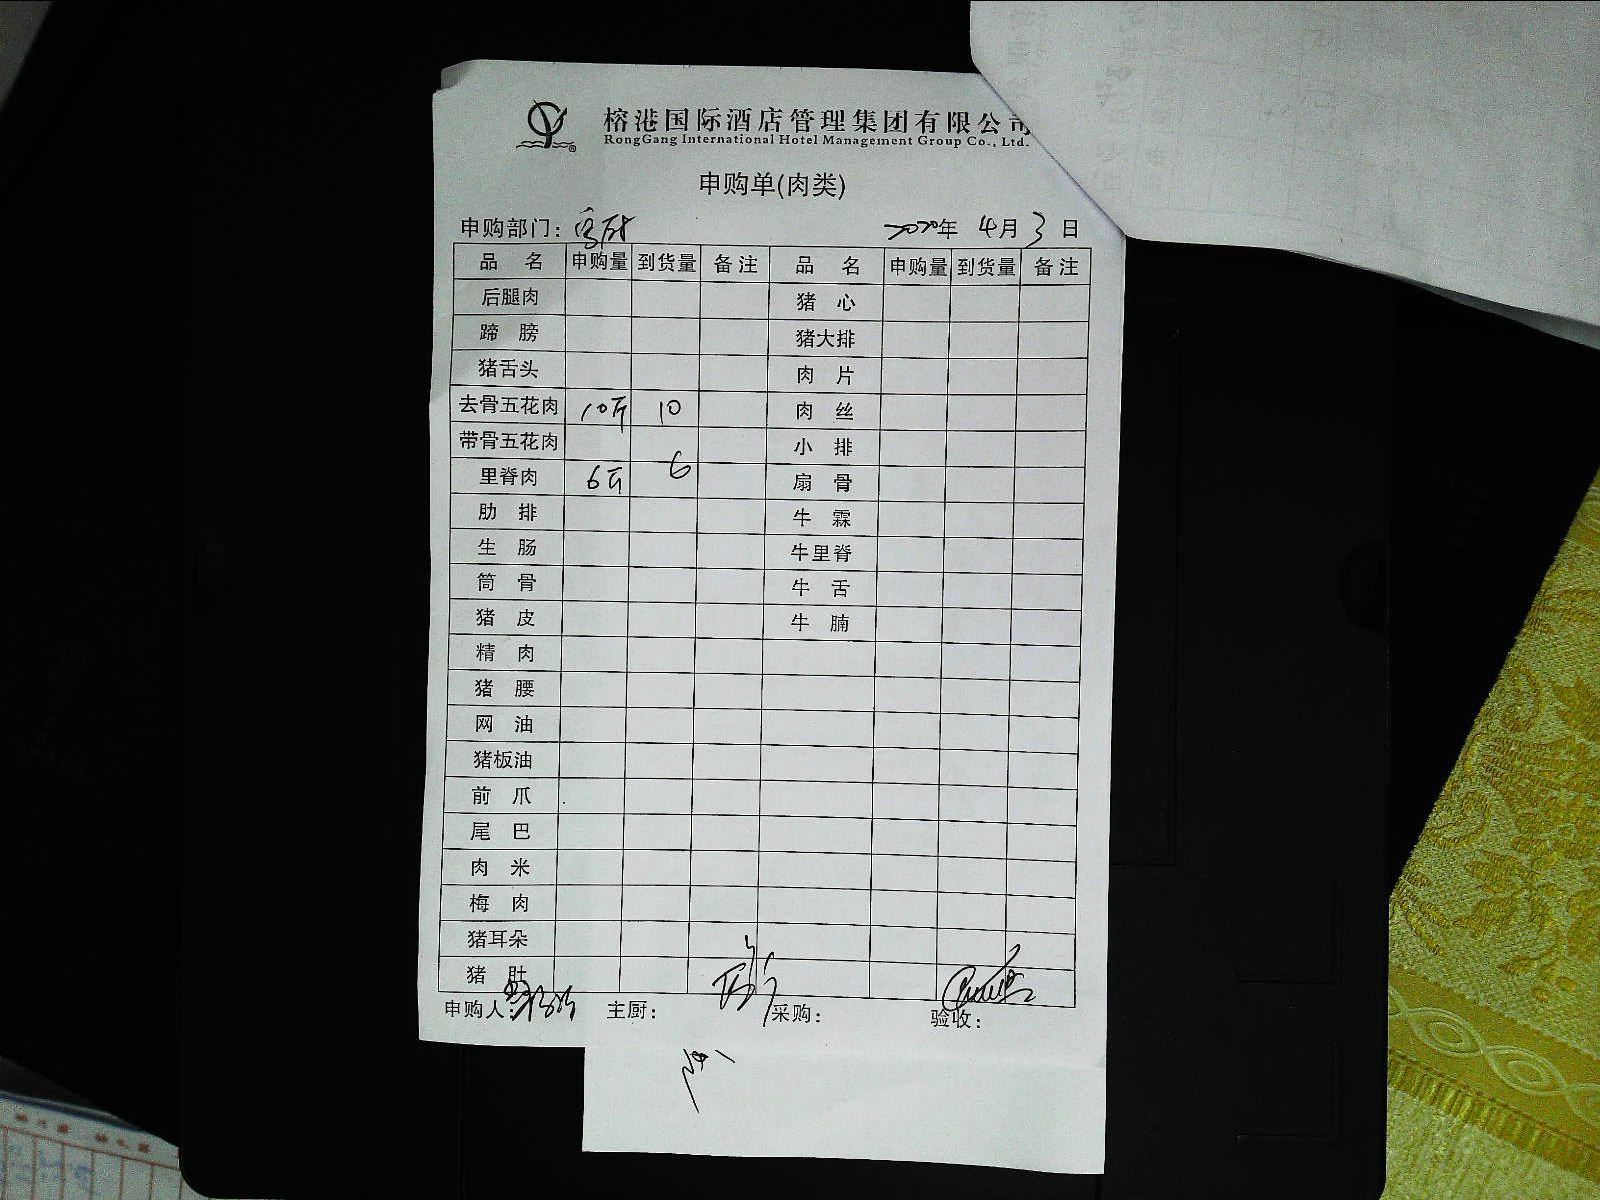 榕港国际酒店管理集团有限公司
RongGang International Hotel Management Group Co., Ltd.
申购单(肉类)
申购部门: 2020年 4月 3日
品 名 申购量 到货量 备注 品 名 申购量 到货量 备注
后腿肉 猪 心
蹄 膀 猪大排
猪舌头 肉 片
去骨五花肉 10斤 10 肉 丝
带骨五花肉 小 排
里脊肉 6斤 6 扇 骨
肋 排 牛 霖
生 肠 牛里脊
筒 骨 牛 舌
猪 皮 牛 腩
精 肉
猪 腰
网 油
猪板油
前 爪
尾 巴
肉 米
梅 肉
猪耳朵
猪 肚
申购人: 主厨: 采购: 验收: